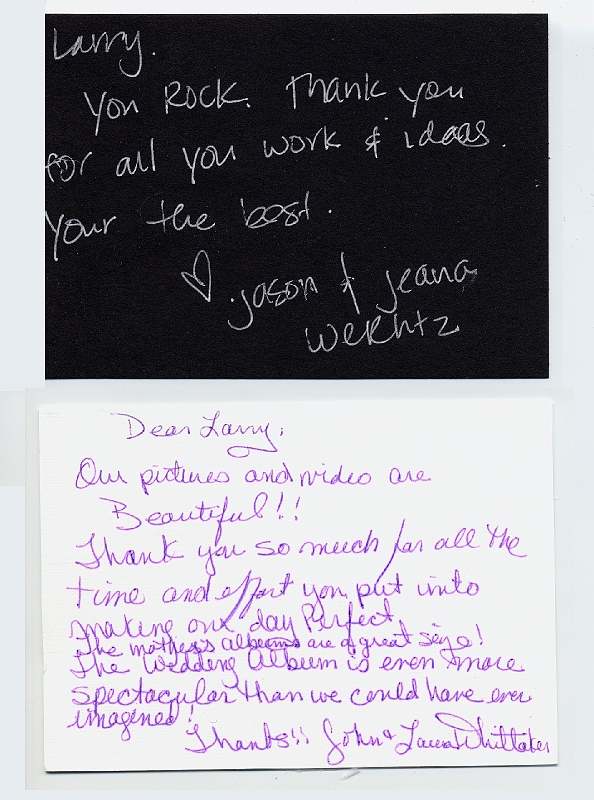 Larry.
You Rock. Thank you
for all you work & ideas.
Your the best.
♡ Jason & Jeana
Werhtz
Dear Larry,
Our pictures and video are
Beautiful!!
Thank you so much for all the
time and effort you put into
making our day Perfect.
The mothers albums are a great size!
The Wedding Album is even more
spectacular than we could have ever
imagined!
Thanks!! John & Laura Whittaker